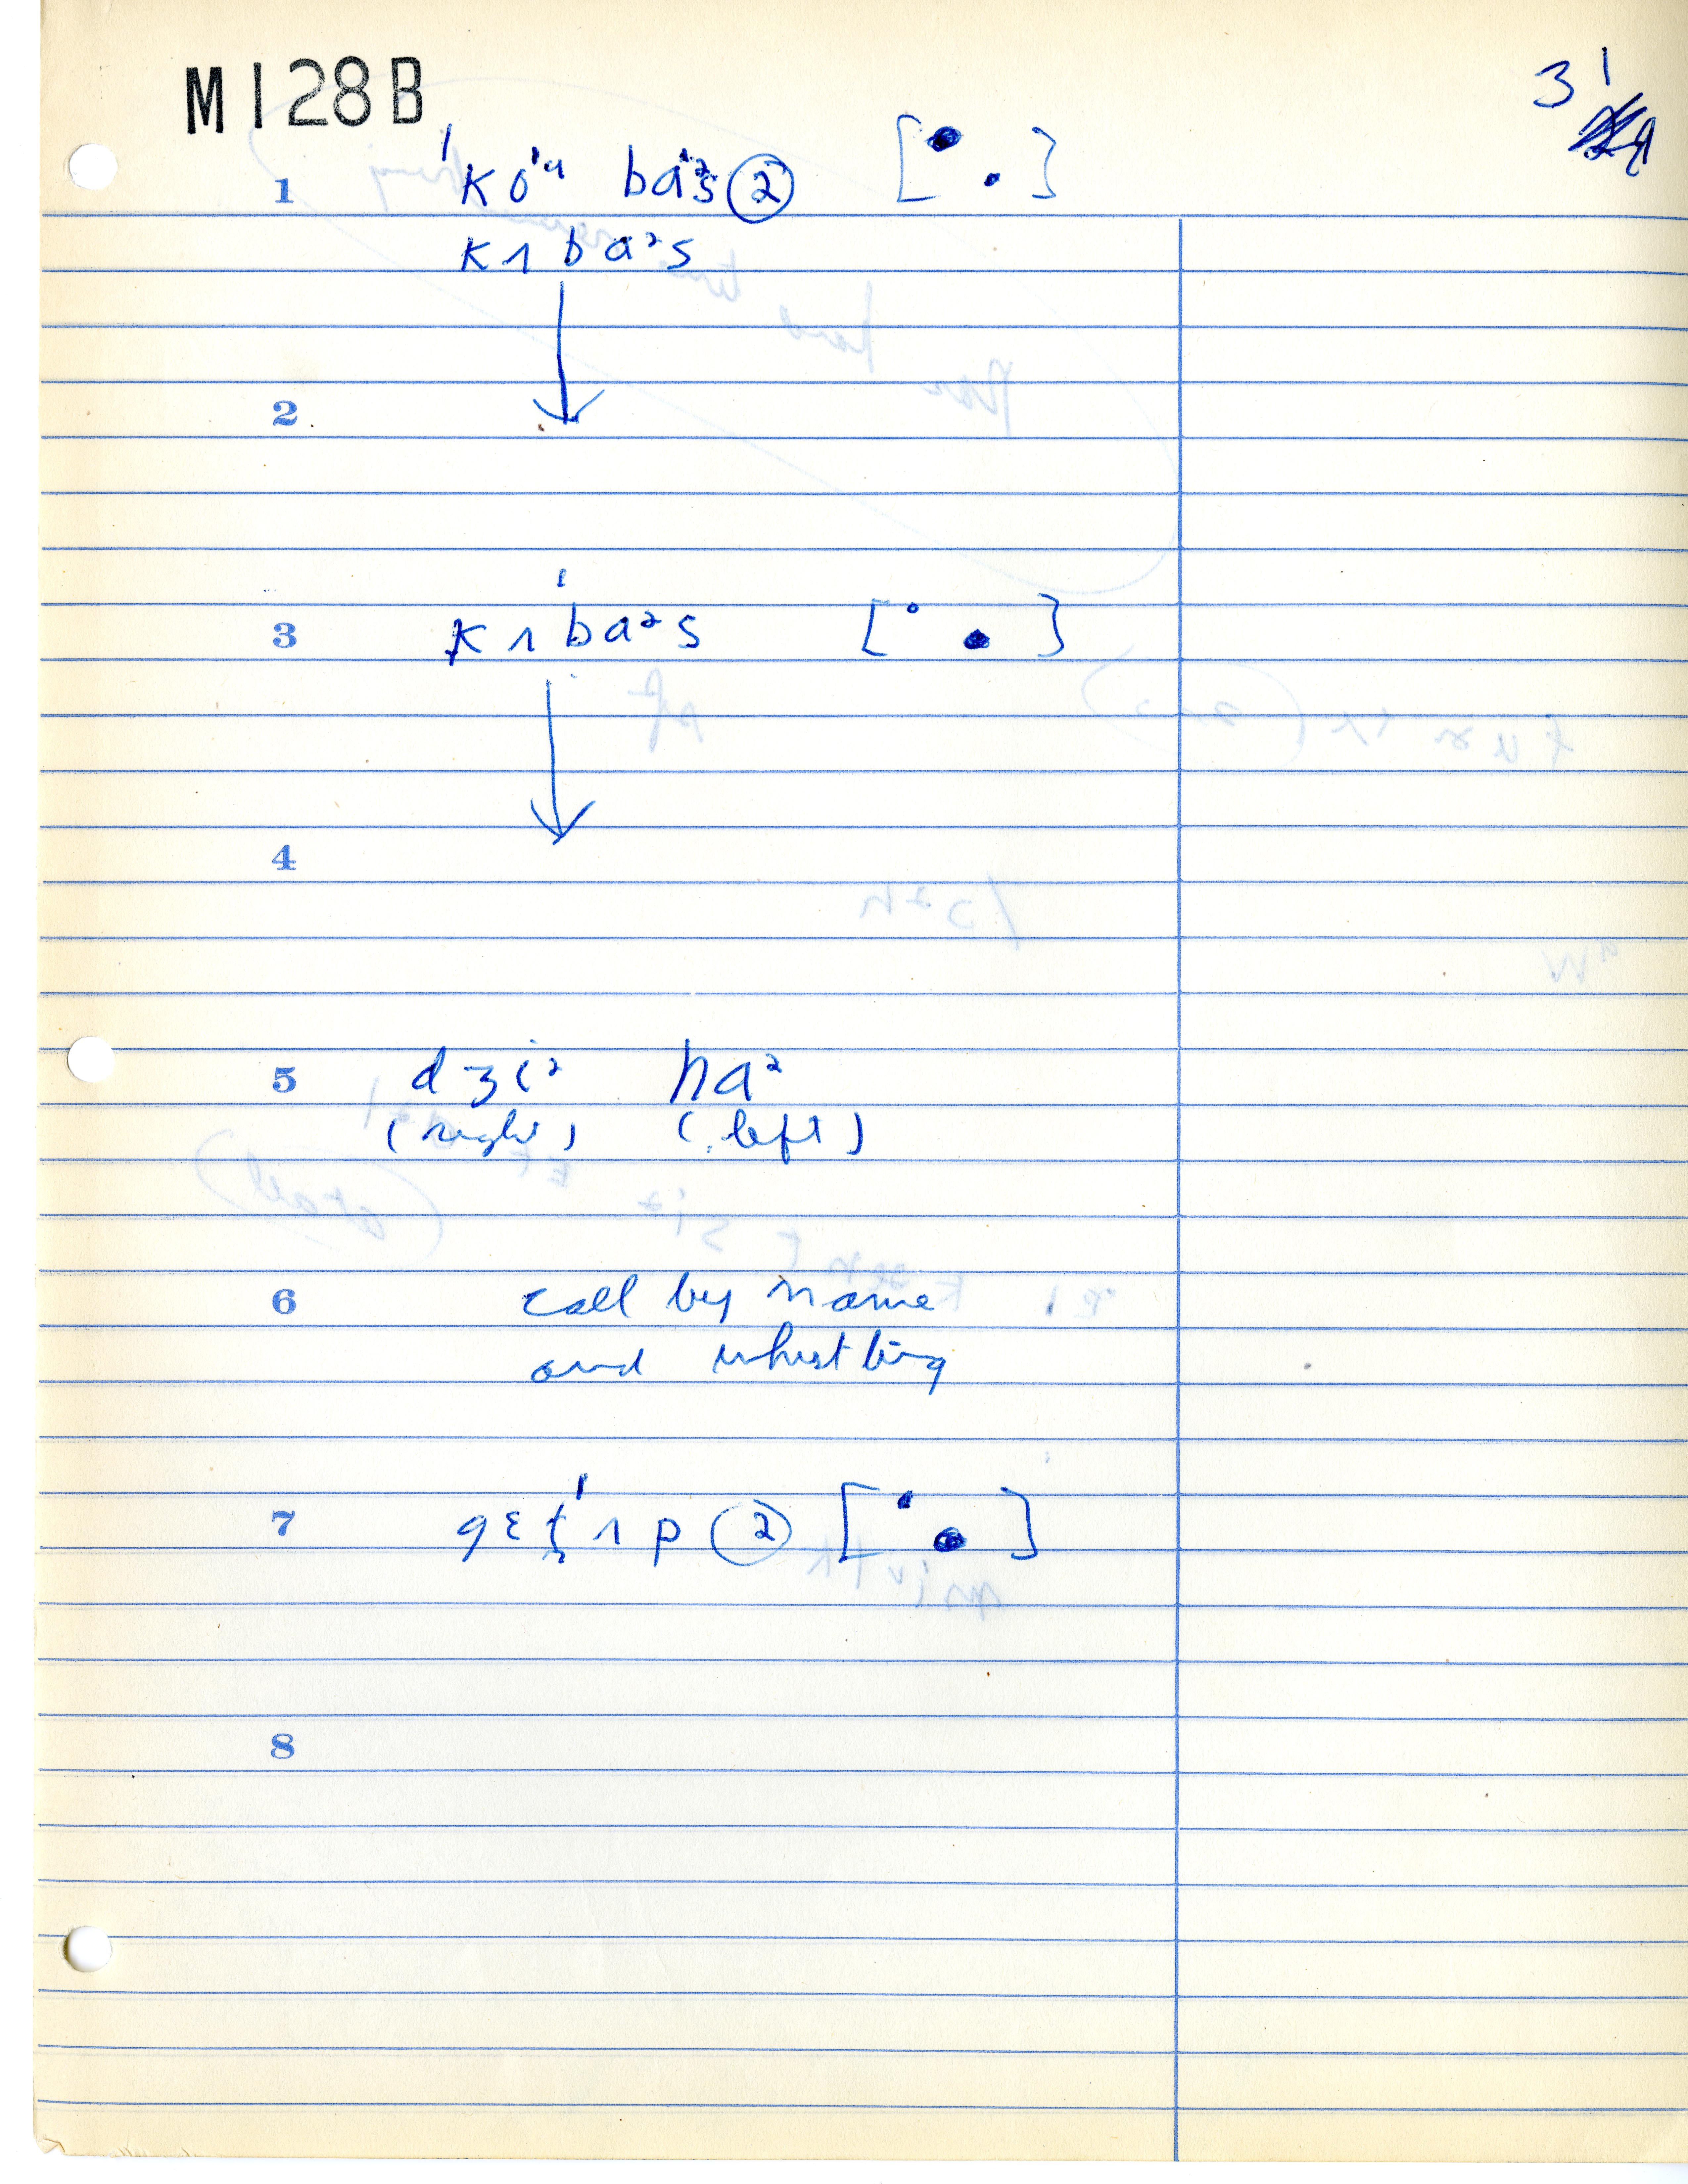 M128B
31
1 ˈKoˈᵘ baˈ²s ② [• .]
Kʌ ba²s
2
3 Kʌˈba²s [° •]
4
5 dʒi² ha²
(right) (left)
6 call by name
and whistling
7 gɛʈˈʌp ② [• •]
8